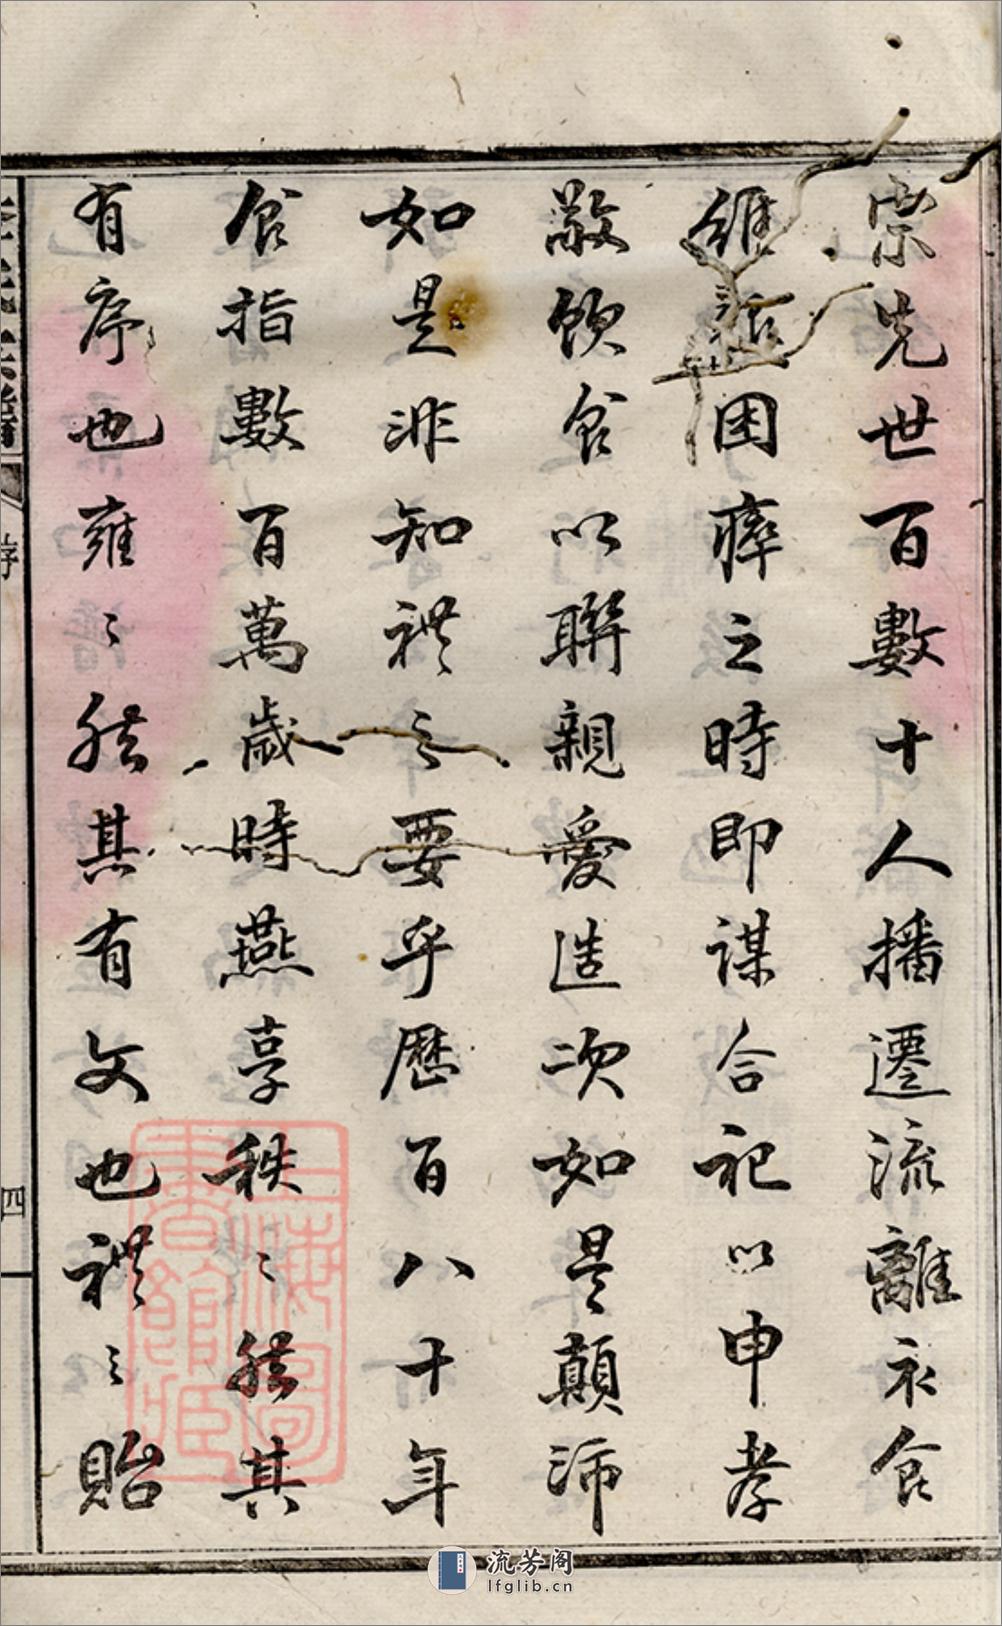 宗先世百數十人播遷流離衣食
維艱困瘁之時即謀合祀以申孝
敬飲食以聯親愛造次如是顛沛
如是非知禮之要乎歷百八十年
食指數百萬歲時燕享秩〻然其
有序也雍〻然其有文也禮之貽
序
四
上海圖書館藏
流芳阁
lfglib.cn